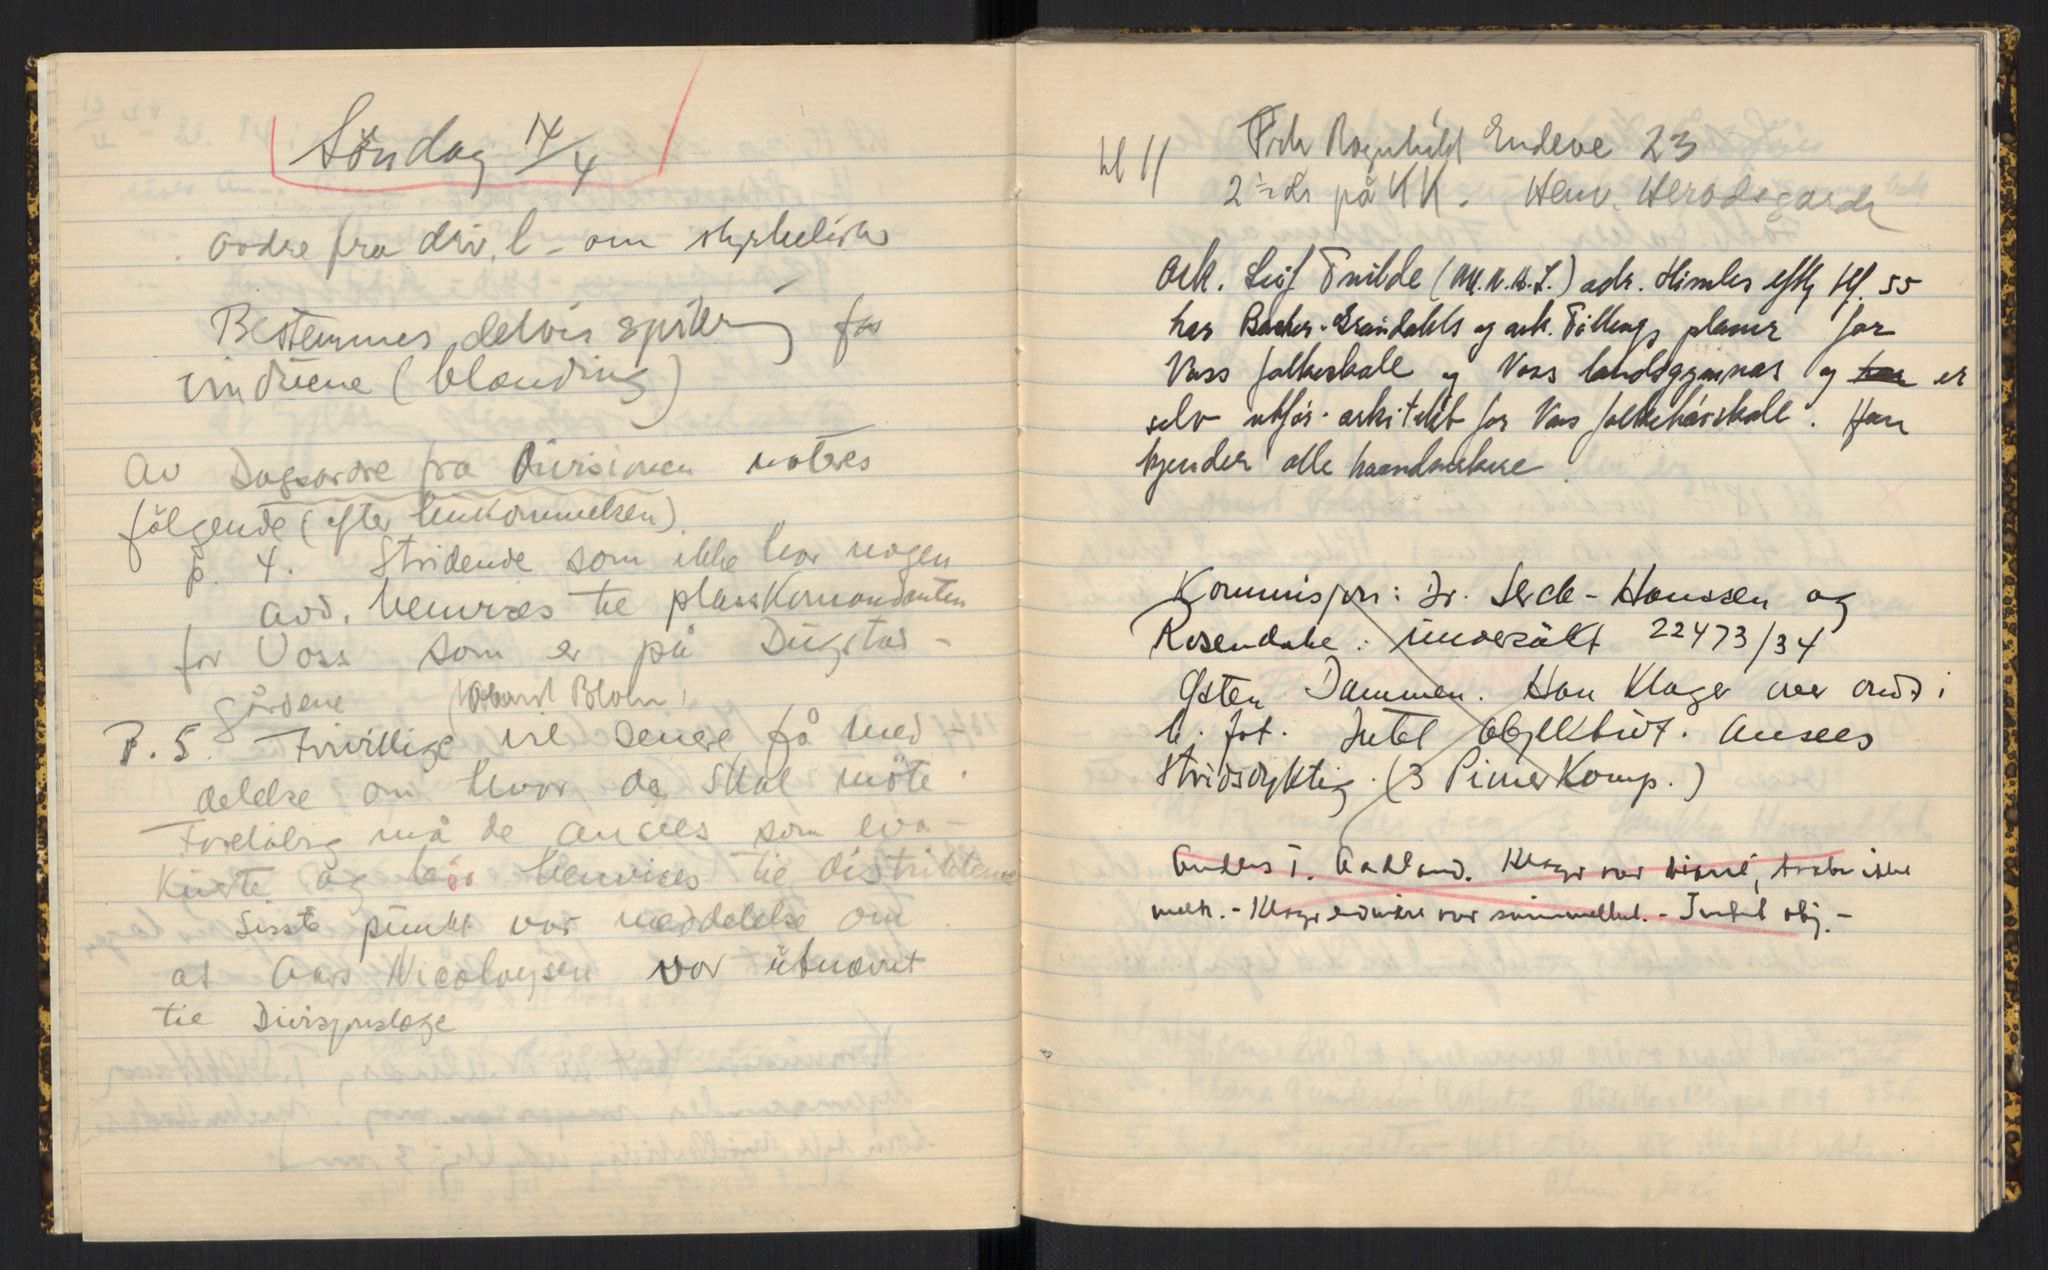 Söndag 14/4
Ordre fra div. l - om styrkeliste
Bestemmes delvis spikring for
vinduene (blending)
Av Dagsordre fra Divisionen noteres
följgende (efter hukommelsen)
p. 4. Stridende som ikke har nogen
avd. henvises til plasskomandanten
for Voss som er på Dugstad-
gårdene (Oberst Blom)
P. 5. Frivillige vil senere få med-
delelse om hvor de skal möte.
Foreløbig må de ansees som eva-
kuerte og henvises til distriktene
Siste punkt var meddelelse om
at Aars Nicolaysen var utnævnt
til Divisjonslæge
kl 11 Frk Ragnhild Endeve 23
2 år på KK. Henv. Herodsgaard
Ark. Leif Trulde (M.N.A.L.) adr. Himles eftf tlf. 55
har Backer-Grøndahls og ark. planer for
Voss folkeskole og Voss landsgymnas og er
selv utfør. arkitekt for Voss folkehøiskole. Han
kjender alle haandverkere.
Kommisjon: Dr. Serck-Hanssen og
Rosendahl: undersøkt 22473/34
Østen Dammen. Han klager over ondt i
h. fot. Intet objektivt. Ansees
stridsdyktig. (3 Pioner Komp.)
Anders T. Aadland. Klager over diarré, taaler ikke
melk. - Klager over Intet obj. -